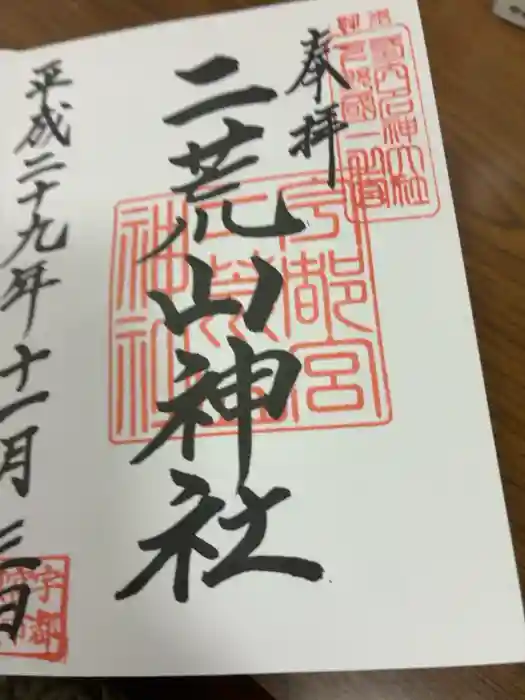 奉拝
二荒山神社
平成二十九年十一月三日
下野國一之宮
宇都宮
二荒山
神社